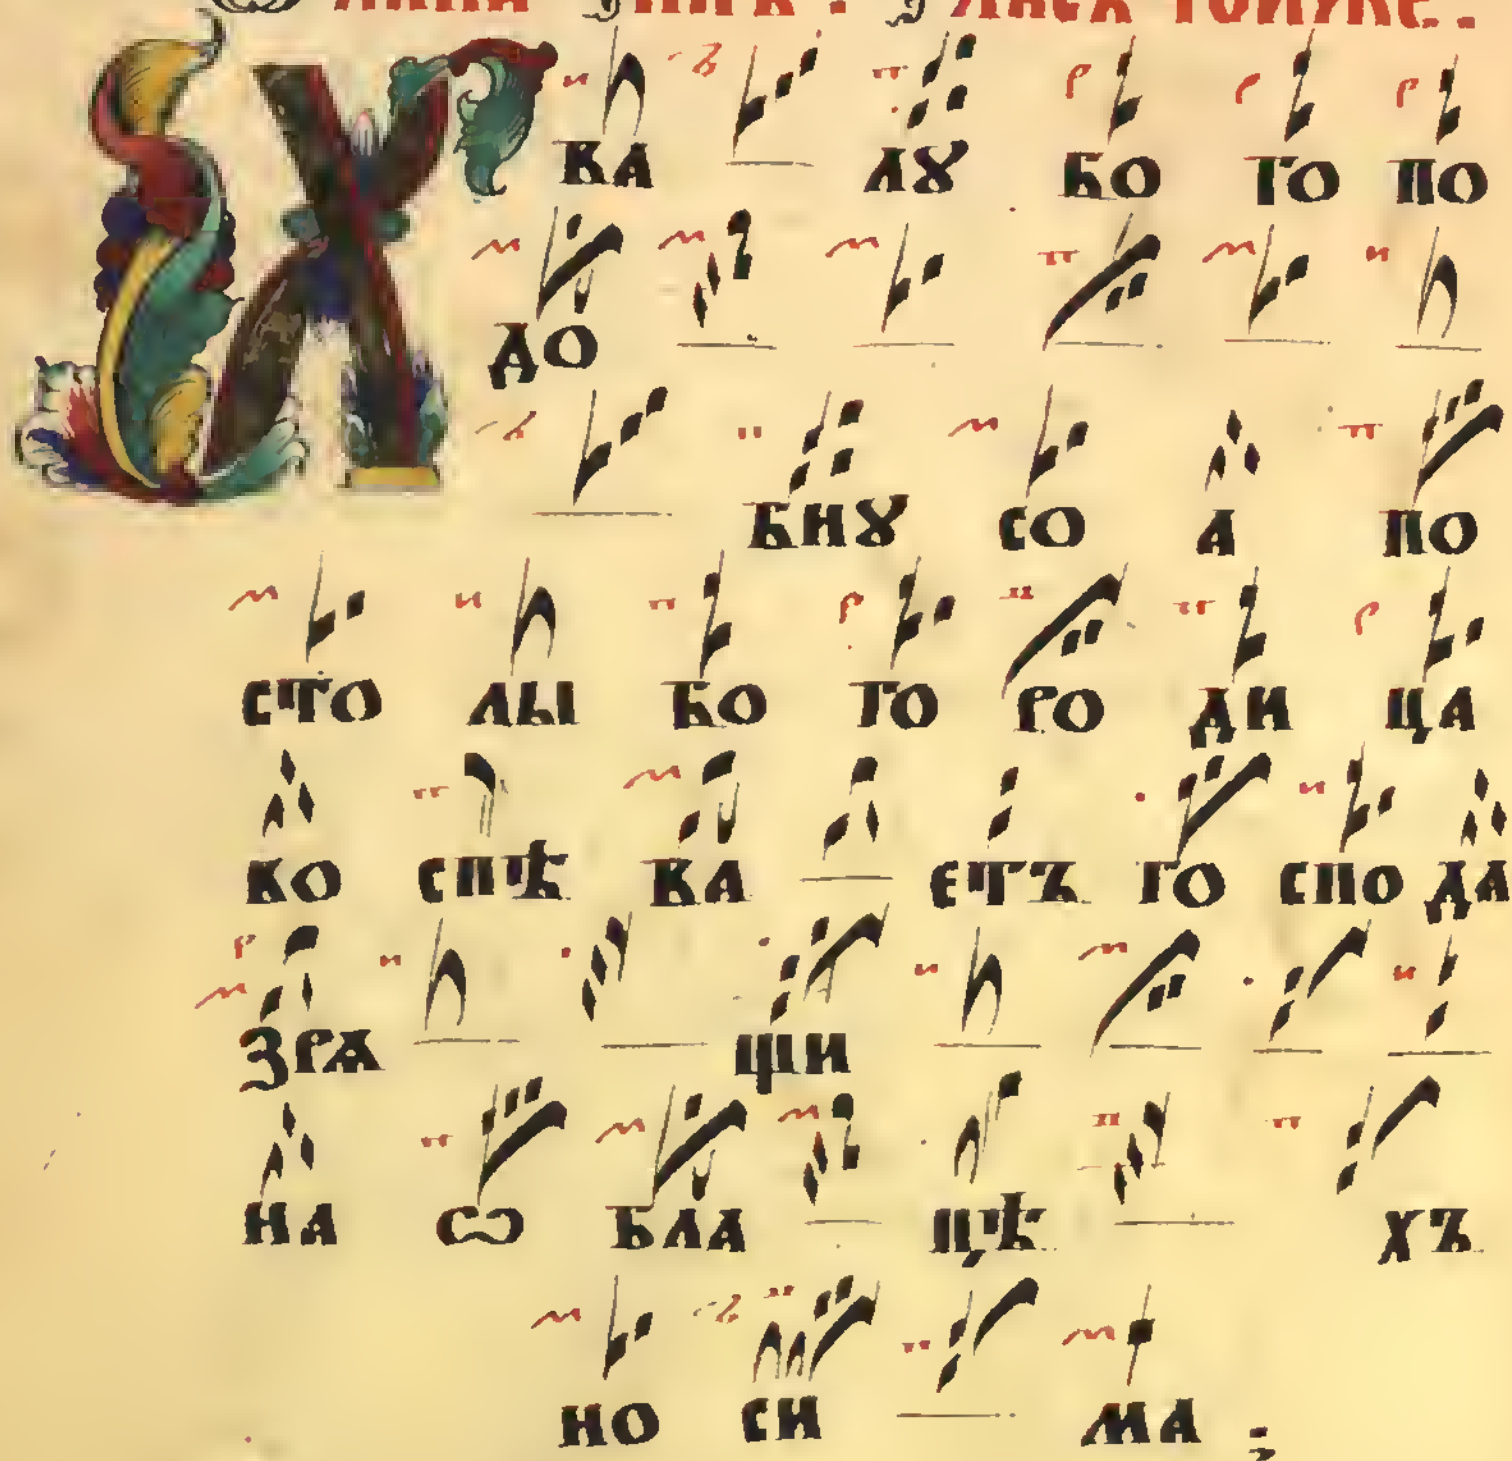 Х ВА ЛꙊ БО ГО ПО
ДО
БНꙊ СО А ПО
СТО ЛЫ БО ГО РО ДИ ЦА
ВО СПѢ ВА ЕТЪ ГО СПО ДА
ЗРѦ ЩИ
НА Ѡ БЛА ЦѢ ХЪ
НО СИ МА